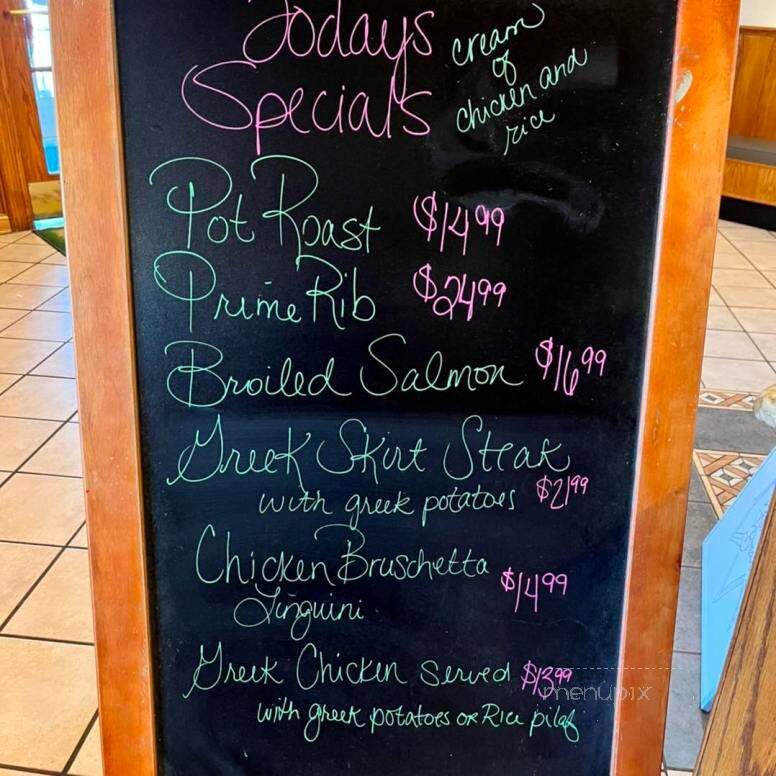 Todays
Specials
cream
of
chicken and
rice
Pot Roast $14.99
Prime Rib $24.99
Broiled Salmon $16.99
Greek Skirt Steak
with greek potatoes $21.99
Chicken Bruschetta
Linguini $14.99
Greek Chicken served $13.99
with greek potatoes or Rice pilaf
menupix